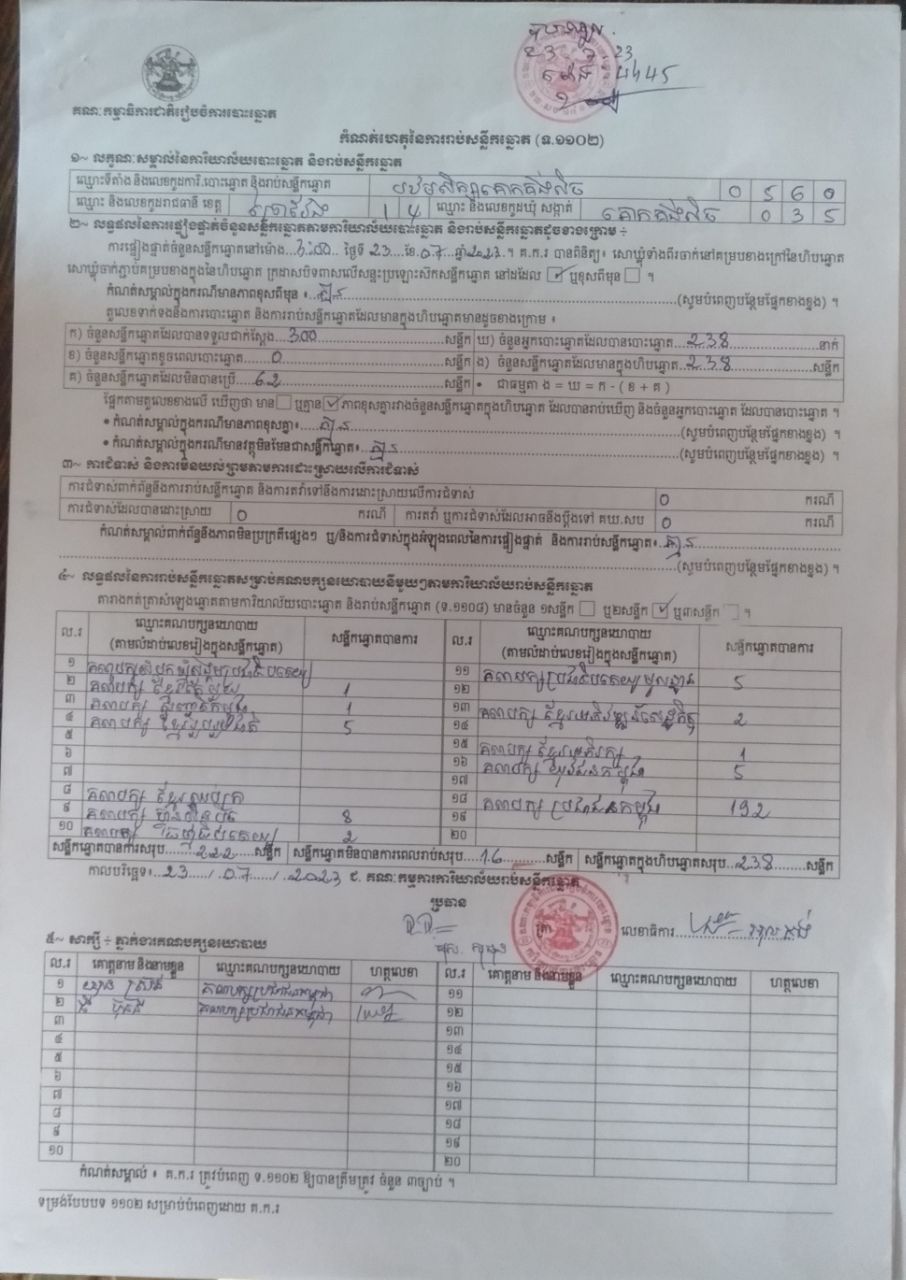 គណៈកម្មាធិការជាតិរៀបចំការបោះឆ្នោត
កំណត់ហេតុនៃការរាប់សន្លឹកឆ្នោត (ទ.១១០២)
១~ លក្ខណៈសម្គាល់នៃការិយាល័យបោះឆ្នោត និងរាប់សន្លឹកឆ្នោត
ឈ្មោះទីតាំង និងលេខកូដការិ.បោះឆ្នោត និងរាប់សន្លឹកឆ្នោត បឋមសិក្សាគោកគង់លិច 0 5 6 0
ឈ្មោះ និងលេខកូដរាជធានី ខេត្ត ព្រៃវែង 1 4 ឈ្មោះ និងលេខកូដឃុំ សង្កាត់ គោកគង់លិច 0 3 5
២~ លទ្ធផលនៃការផ្ទៀងផ្ទាត់ចំនួនសន្លឹកឆ្នោតតាមការិយាល័យបោះឆ្នោត និងរាប់សន្លឹកឆ្នោតដូចខាងក្រោម ÷
ការផ្ទៀងផ្ទាត់ចំនួនសន្លឹកឆ្នោតនៅម៉ោង 3:00 ថ្ងៃទី 23 ខែ 07 ឆ្នាំ 2023 ។ គ.ក.រ បានពិនិត្យ៖ សោឃ្លុំទាំងពីរចាក់នៅគម្របខាងក្រៅនៃហិបឆ្នោត
សោឃ្លុំចាក់ភ្ជាប់គម្របខាងក្នុងនៃហិបឆ្នោត ក្រដាសបិទពាសលើសន្ទះប្រឡោះសឹកសន្លឹកឆ្នោត នៅដដែល ✓ ឬខុសពីមុន ។
កំណត់សម្គាល់ក្នុងករណីមានភាពខុសពីមុន ៖ គ្មាន (សូមបំពេញបន្ថែមផ្នែកខាងខ្នង) ។
តួលេខទាក់ទងនឹងការបោះឆ្នោត និងការរាប់សន្លឹកឆ្នោតដែលមានក្នុងហិបឆ្នោតមានដូចខាងក្រោម ៖
ក) ចំនួនសន្លឹកឆ្នោតដែលបានទទួលជាក់ស្តែង 300 សន្លឹក ឃ) ចំនួនអ្នកបោះឆ្នោតដែលបានបោះឆ្នោត 238 នាក់
ខ) ចំនួនសន្លឹកឆ្នោតខូចពេលបោះឆ្នោត 0 សន្លឹក ង) ចំនួនសន្លឹកឆ្នោតដែលមានក្នុងហិបឆ្នោត 238 សន្លឹក
គ) ចំនួនសន្លឹកឆ្នោតដែលមិនបានប្រើ 62 សន្លឹក • ជាធម្មតា ង = ឃ = ក - ( ខ + គ )
ផ្អែកតាមតួលេខខាងលើ ឃើញថា មាន ឬគ្មាន ✓ ភាពខុសគ្នារវាងចំនួនសន្លឹកឆ្នោតក្នុងហិបឆ្នោត ដែលបានរាប់ឃើញ និងចំនួនអ្នកបោះឆ្នោត ដែលបានបោះឆ្នោត ។
• កំណត់សម្គាល់ក្នុងករណីមានភាពខុសគ្នា៖ គ្មាន (សូមបំពេញបន្ថែមផ្នែកខាងខ្នង) ។
• កំណត់សម្គាល់ក្នុងករណីមានវត្ថុមិនមែនជាសន្លឹកឆ្នោត៖ គ្មាន (សូមបំពេញបន្ថែមផ្នែកខាងខ្នង) ។
៣~ ការជំទាស់ និងការមិនយល់ព្រមតាមការដោះស្រាយលើការជំទាស់
ការជំទាស់ពាក់ព័ន្ធនឹងការរាប់សន្លឹកឆ្នោត និងការតវ៉ាទៅនឹងការដោះស្រាយលើការជំទាស់ 0 ករណី
ការជំទាស់ដែលបានដោះស្រាយ 0 ករណី ការតវ៉ា ឬការជំទាស់ដែលអាចនឹងប្តឹងទៅ គឃ.សប 0 ករណី
កំណត់សម្គាល់ពាក់ព័ន្ធនឹងភាពមិនប្រក្រតីផ្សេងៗ ឬ/និងការជំទាស់ក្នុងអំឡុងពេលនៃការផ្ទៀងផ្ទាត់ និងការរាប់សន្លឹកឆ្នោត៖ គ្មាន
(សូមបំពេញបន្ថែមផ្នែកខាងខ្នង) ។
៤~ លទ្ធផលនៃការរាប់សន្លឹកឆ្នោតសម្រាប់គណបក្សនយោបាយនីមួយៗតាមការិយាល័យរាប់សន្លឹកឆ្នោត
តារាងកត់ត្រាសំឡេងឆ្នោតតាមការិយាល័យបោះឆ្នោត និងរាប់សន្លឹកឆ្នោត (ទ.១១០៨) មានចំនួន ១សន្លឹក ឬ២សន្លឹក ✓ ឬ៣សន្លឹក ។
ល.រ ឈ្មោះគណបក្សនយោបាយ សន្លឹកឆ្នោតបានការ ល.រ ឈ្មោះគណបក្សនយោបាយ សន្លឹកឆ្នោតបានការ
(តាមលំដាប់លេខរៀងក្នុងសន្លឹកឆ្នោត) (តាមលំដាប់លេខរៀងក្នុងសន្លឹកឆ្នោត)
១ ១១ គណបក្ស ប្រជាធិបតេយ្យមូលដ្ឋាន 5
២ គណបក្ស ខ្មែរតែមួយ 1 ១២
៣ គណបក្ស 1 ១៣ គណបក្ស ខ្មែរអភិវឌ្ឍន៍សេដ្ឋកិច្ច 2
៤ គណបក្ស ខ្មែររួបរួមជាតិ 5 ១៤
៥ ១៥ គណបក្ស ខ្មែរអភិរក្ស 1
៦ ១៦ គណបក្ស យុវជនកម្ពុជា 5
៧ ១៧
៨ គណបក្ស ១៨ គណបក្ស ប្រជាជនកម្ពុជា 192
៩ គណបក្ស ហ្វ៊ុនស៊ិនប៉ិច 8 ១៩
១០ គណបក្ស 2 ២០
សន្លឹកឆ្នោតបានការសរុប 222 សន្លឹក សន្លឹកឆ្នោតមិនបានការពេលរាប់សរុប 16 សន្លឹក សន្លឹកឆ្នោតក្នុងហិបឆ្នោតសរុប 238 សន្លឹក
កាលបរិច្ឆេទ៖ 23 / 07 / 2023 ជ. គណៈកម្មការការិយាល័យរាប់សន្លឹកឆ្នោត
ប្រធាន
លេខាធិការ
៥~ សាក្សី ÷ ភ្នាក់ងារគណបក្សនយោបាយ
ល.រ គោត្តនាម និងនាមខ្លួន ឈ្មោះគណបក្សនយោបាយ ហត្ថលេខា ល.រ គោត្តនាម និងនាមខ្លួន ឈ្មោះគណបក្សនយោបាយ ហត្ថលេខា
១ គណបក្សប្រជាជនកម្ពុជា ១១
២ គណបក្សប្រជាជនកម្ពុជា ១២
៣ ១៣
៤ ១៤
៥ ១៥
៦ ១៦
៧ ១៧
៨ ១៨
៩ ១៩
១០ ២០
កំណត់សម្គាល់ ៖ គ.ក.រ ត្រូវបំពេញ ទ.១១០២ ឱ្យបានត្រឹមត្រូវ ចំនួន ៣ច្បាប់ ។
ទម្រង់បែបបទ ១១០២ សម្រាប់បំពេញដោយ គ.ក.រ